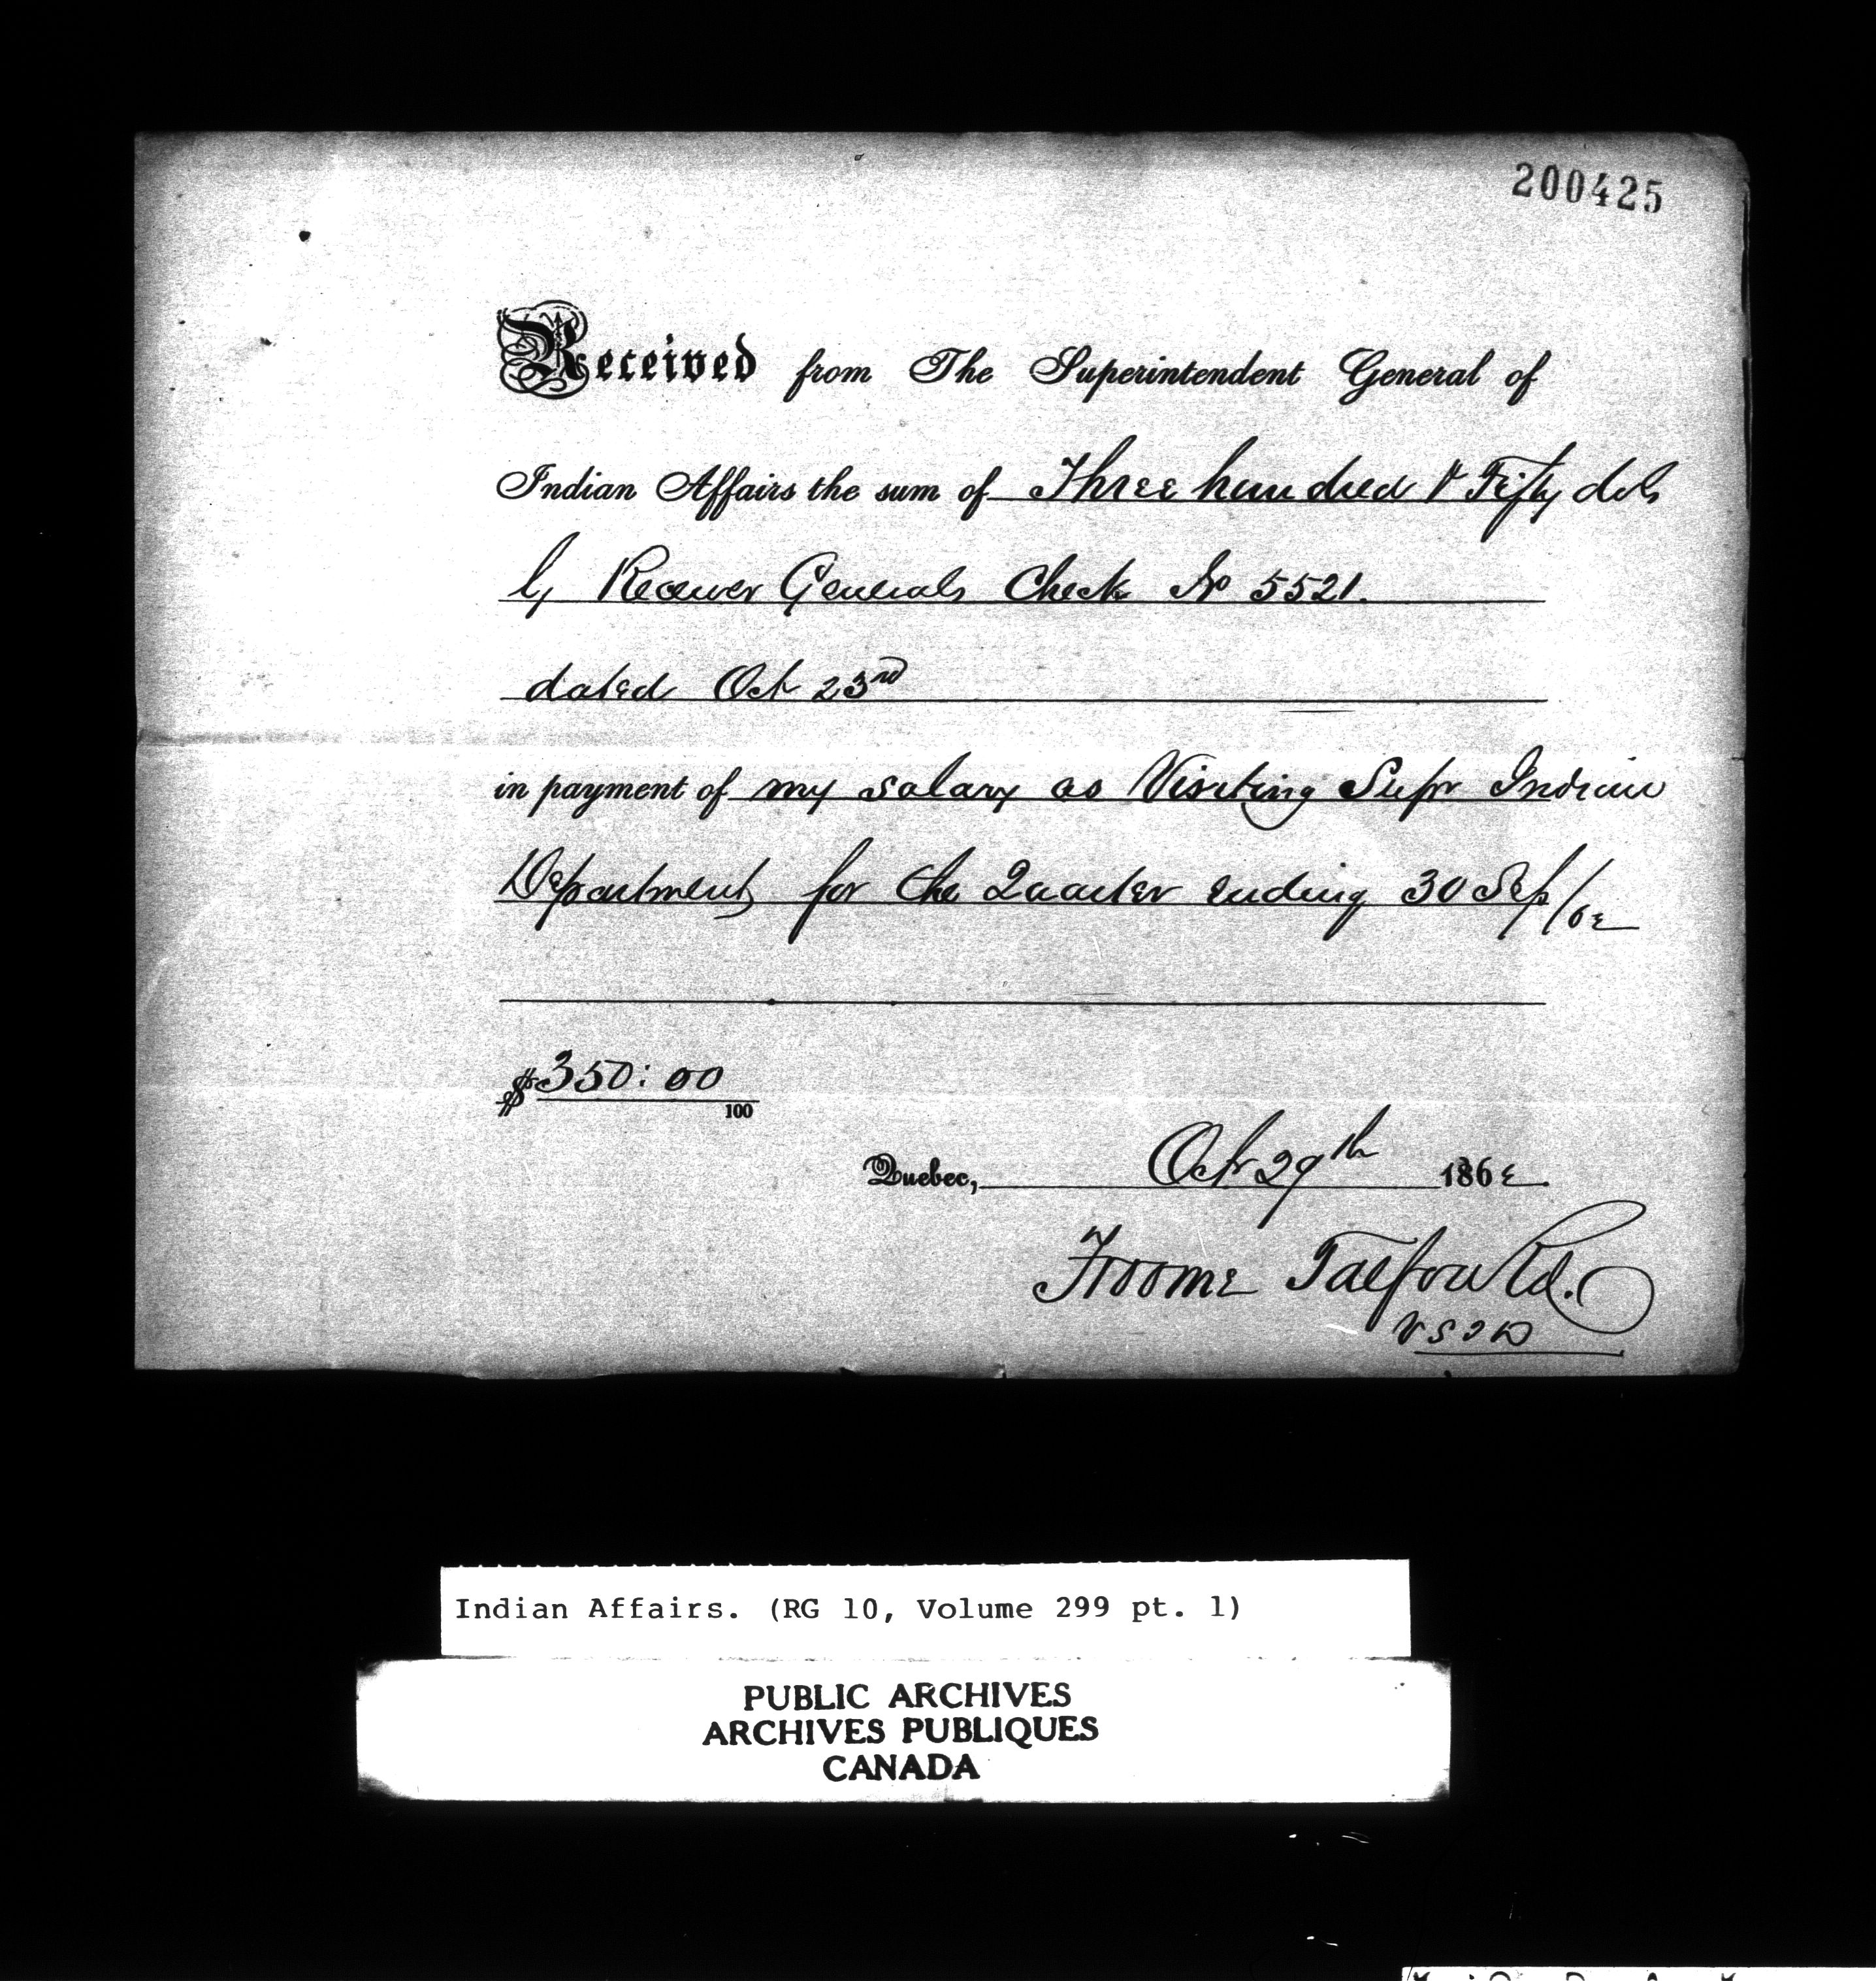 200425
Received from The Superintendent General of
Indian Affairs the sum of Three hundred & Fifty dols
by Receiver Generals Check No 5521.
dated Oct 23rd
in payment of my salary as Visiting Supr Indian
Department for the Quarter ending 30 Sep/62
$350:00
100
Quebec, Octr 29th 1862.
Froome Talfourd.
V S I D
Indian Affairs. (RG 10, Volume 299 pt. 1)
PUBLIC ARCHIVES
ARCHIVES PUBLIQUES
CANADA